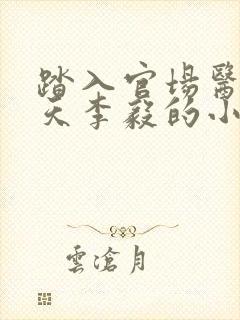 踏入官場醫
天李毅的小
雲滄月